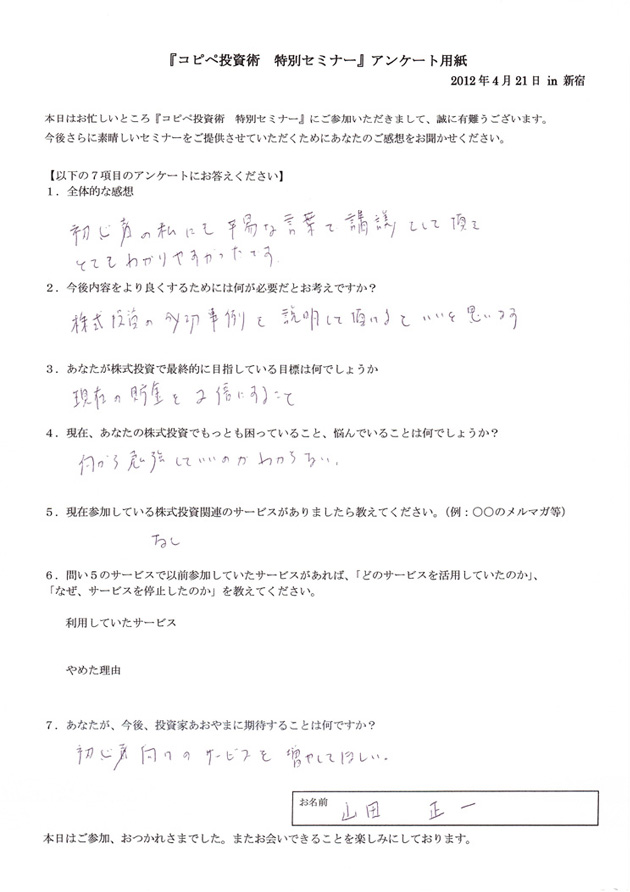 『コピペ投資術　特別セミナー』アンケート用紙
2012年4月21日 in 新宿
本日はお忙しいところ『コピペ投資術　特別セミナー』にご参加いただきまして、誠に有難うございます。
今後さらに素晴しいセミナーをご提供させていただくためにあなたのご感想をお聞かせください。
【以下の７項目のアンケートにお答えください】
１．全体的な感想
初心者の私にも平易な言葉で講議をして頂き
とてもわかりやすかったです。
２．今後内容をより良くするためには何が必要だとお考えですか？
株式投資の成功事例を説明して頂けるといいと思います
３．あなたが株式投資で最終的に目指している目標は何でしょうか
現在の貯金を2倍にすること
４．現在、あなたの株式投資でもっとも困っていること、悩んでいることは何でしょうか？
何から勉強していいのかわからない。
５．現在参加している株式投資関連のサービスがありましたら教えてください。（例：〇〇のメルマガ等）
なし
６．問い５のサービスで以前参加していたサービスがあれば、「どのサービスを活用していたのか」、
「なぜ、サービスを停止したのか」を教えてください。
利用していたサービス
やめた理由
７．あなたが、今後、投資家あおやまに期待することは何ですか？
初心者向けのサービスを増やしてほしい。
お名前 山田　正一
本日はご参加、おつかれさまでした。またお会いできることを楽しみにしております。